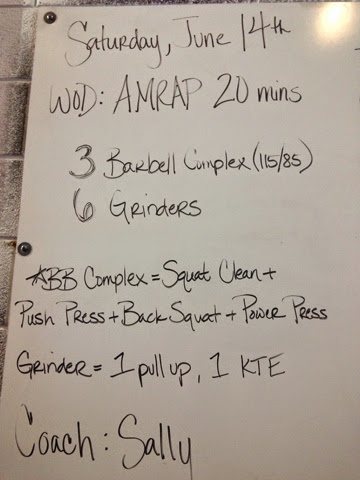 Saturday, June 14th
WOD: AMRAP 20 mins
3 Barbell Complex (115/85)
6 Grinders
*BB Complex = Squat Clean +
Push Press + Back Squat + Power Press
Grinder = 1 pull up, 1 KTE
Coach: Sally